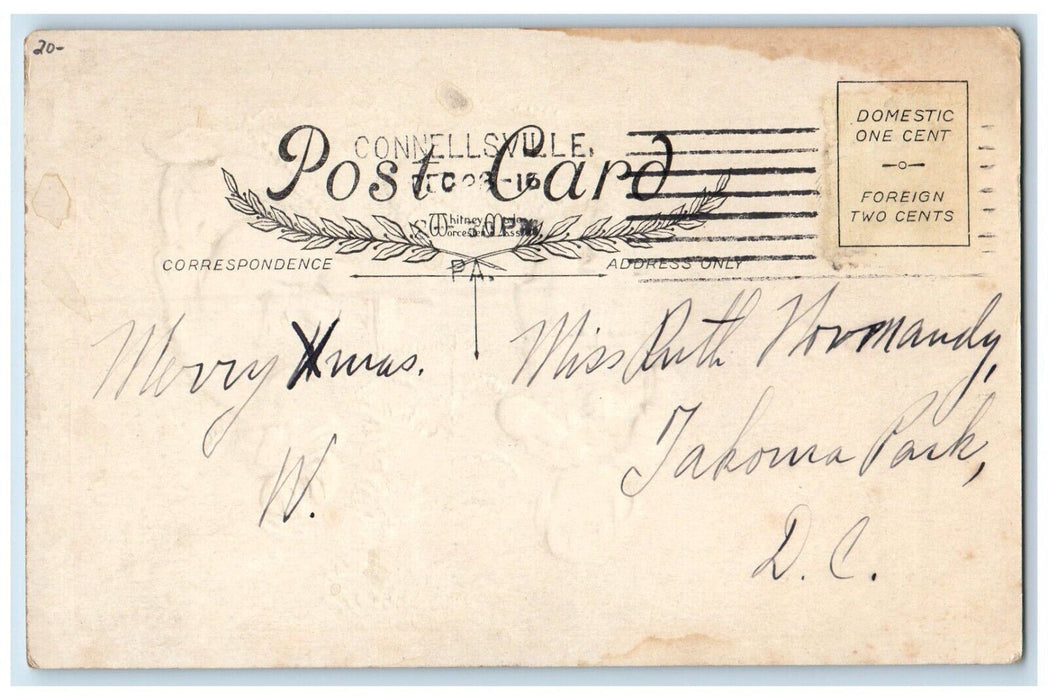 20-
CONNELLSVILLE,
Post Card
DEC 23
Whitney Made
Worcester, Mass
30 PM
PA.
DOMESTIC
ONE CENT
FOREIGN
TWO CENTS
CORRESPONDENCE
ADDRESS ONLY
Merry Xmas.
W.
Miss Ruth Normandy,
Takoma Park,
D. C.